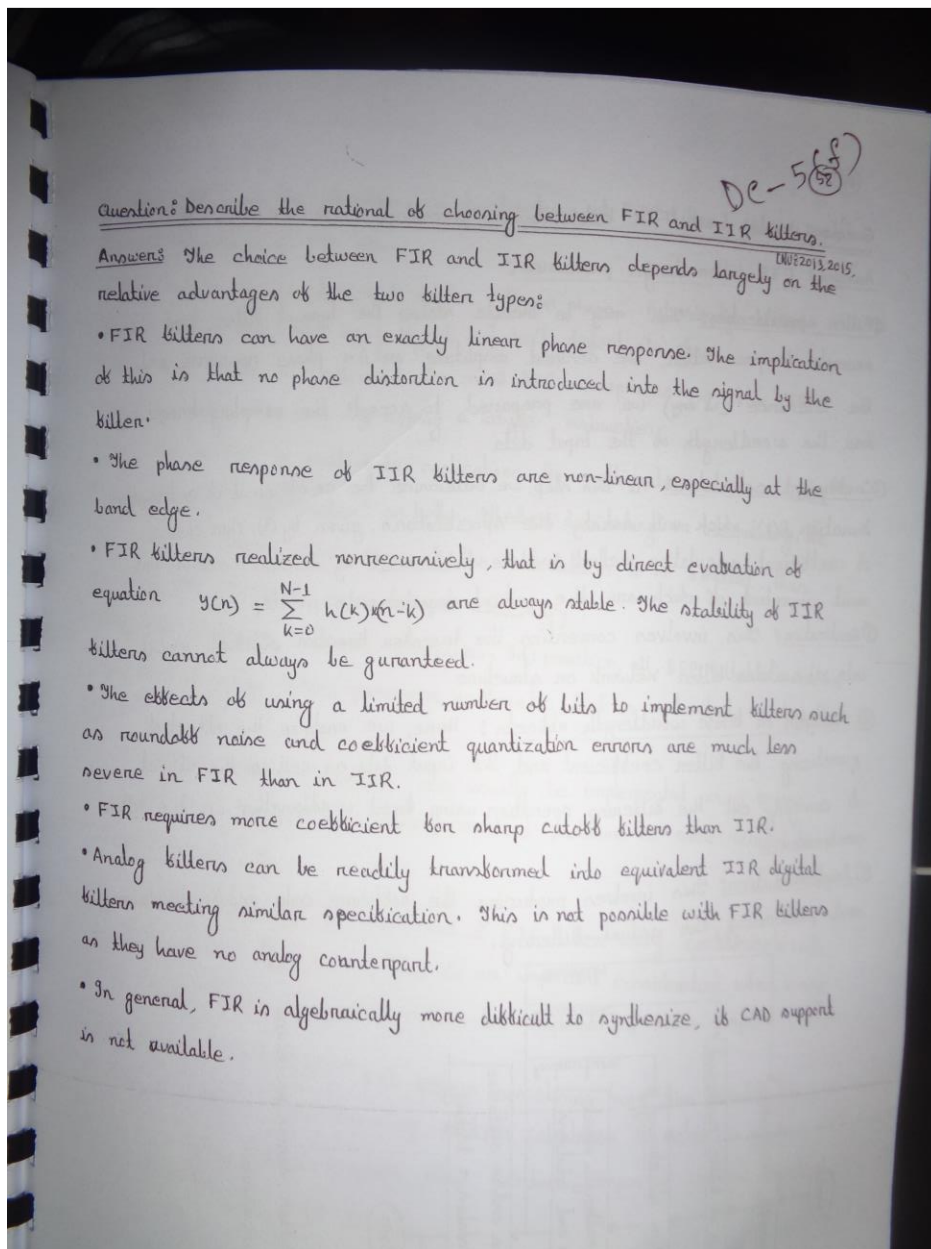 DC-5(f)
52
Question: Describe the rational of choosing between FIR and IIR filters.
2013, 2015,
Answer: The choice between FIR and IIR filters depends largely on the
relative advantages of the two filter types:
• FIR filters can have an exactly linear phase response. The implication
of this is that no phase distortion is introduced into the signal by the
filter.
• The phase response of IIR filters are non-linear, especially at the
band edge.
• FIR filters realized nonrecursively, that is by direct evaluation of
equation y(n) = N-1 Σ k=0 h(k)x(n-k) are always stable. The stability of IIR
filters cannot always be guranteed.
• The effects of using a limited number of bits to implement filters such
as roundoff noise and coefficient quantization errors are much less
severe in FIR than in IIR.
• FIR requires more coefficient for sharp cutoff filters than IIR.
• Analog filters can be readily transformed into equivalent IIR digital
filters meeting similar specification. This is not possible with FIR filters
as they have no analog counterpart.
• In general, FIR is algebraically more difficult to synthesize, if CAD support
is not available.